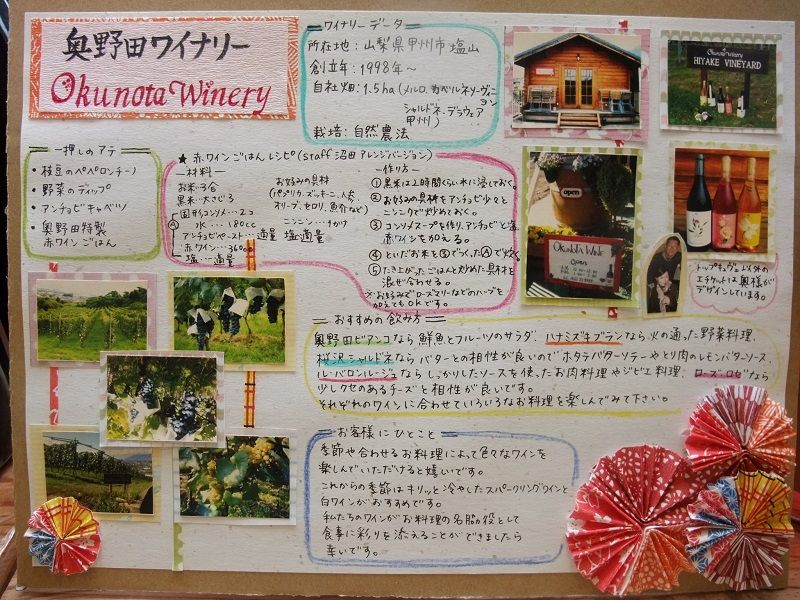 奥野田ワイナリー
Okunota Winery
ワイナリーデータ
所在地：山梨県甲州市塩山
創立年：1998年～
自社畑：1.5ha（メルロ、カベルネソーヴィニヨン
シャルドネ、デラウェア
甲州）
栽培：自然農法
一押しのアテ
・枝豆のペペロンチーノ
・野菜のディップ
・アンチョビキャベツ
・奥野田特製
赤ワインごはん
★赤ワインごはんレシピ（staff沼田アレンジバージョン）
材料
お米…3合
黒米…大さじ3
固形コンソメ…2コ
水…180cc
アンチョビペースト…適量
赤ワイン…360cc
塩…適量
お好みの具材
（パプリカ、ズッキーニ、人参、
オリーブ、セロリ、魚介など）
ニンニク…1かけ
塩…適量
作り方
①黒米は2時間くらい水に浸しておく。
②お好みの具材をアンチョビ少々と
ニンニクで炒めておく。
③コンソメスープを作り、アンチョビと塩、
赤ワインを加える。
④といだお米を③でつくったⒶで炊く
⑤たき上がったごはんと炒めた具材を
混ぜ合わせる。
※お好みでローズマリーなどのハーブを
加えてもOKです。
Okunota Winery
HIYAKE VINEYARD
open
Okunota Wine
open
トップキュヴェ以外の
エチケットは奥様が
デザインしています。
おすすめの飲み方
奥野田ビアンコなら鮮魚とフルーツのサラダ、ハナミズキブランなら、火の通った野菜料理、
桜沢シャルドネならバターとの相性が良いのでホタテバターソテーやとり肉のレモンバターソース、
ル・バロンルージュならしっかりしたソースを使ったお肉料理やジビエ料理、ローズ・ロゼなら
少しクセのあるチーズと相性が良いです。
それぞれのワインに合わせていろいろなお料理を楽しんでみて下さい。
お客様にひとこと
季節や合わせるお料理によって色々なワインを
楽しんでいただけると嬉しいです。
これからの季節はキリッと冷やしたスパークリングワインと
白ワインがおすすめです。
私たちのワインがお料理の名脇役として
食事に彩りを添えることができましたら
幸いです。